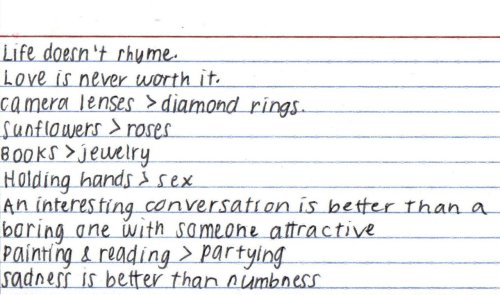 Life doesn't rhyme.
Love is never worth it.
camera lenses > diamond rings.
Sunflowers > roses
BOOKS > jewelry
Holding hands > sex
An interesting conversation is better than a
boring one with someone attractive
Painting & reading > partying
sadness is better than numbness